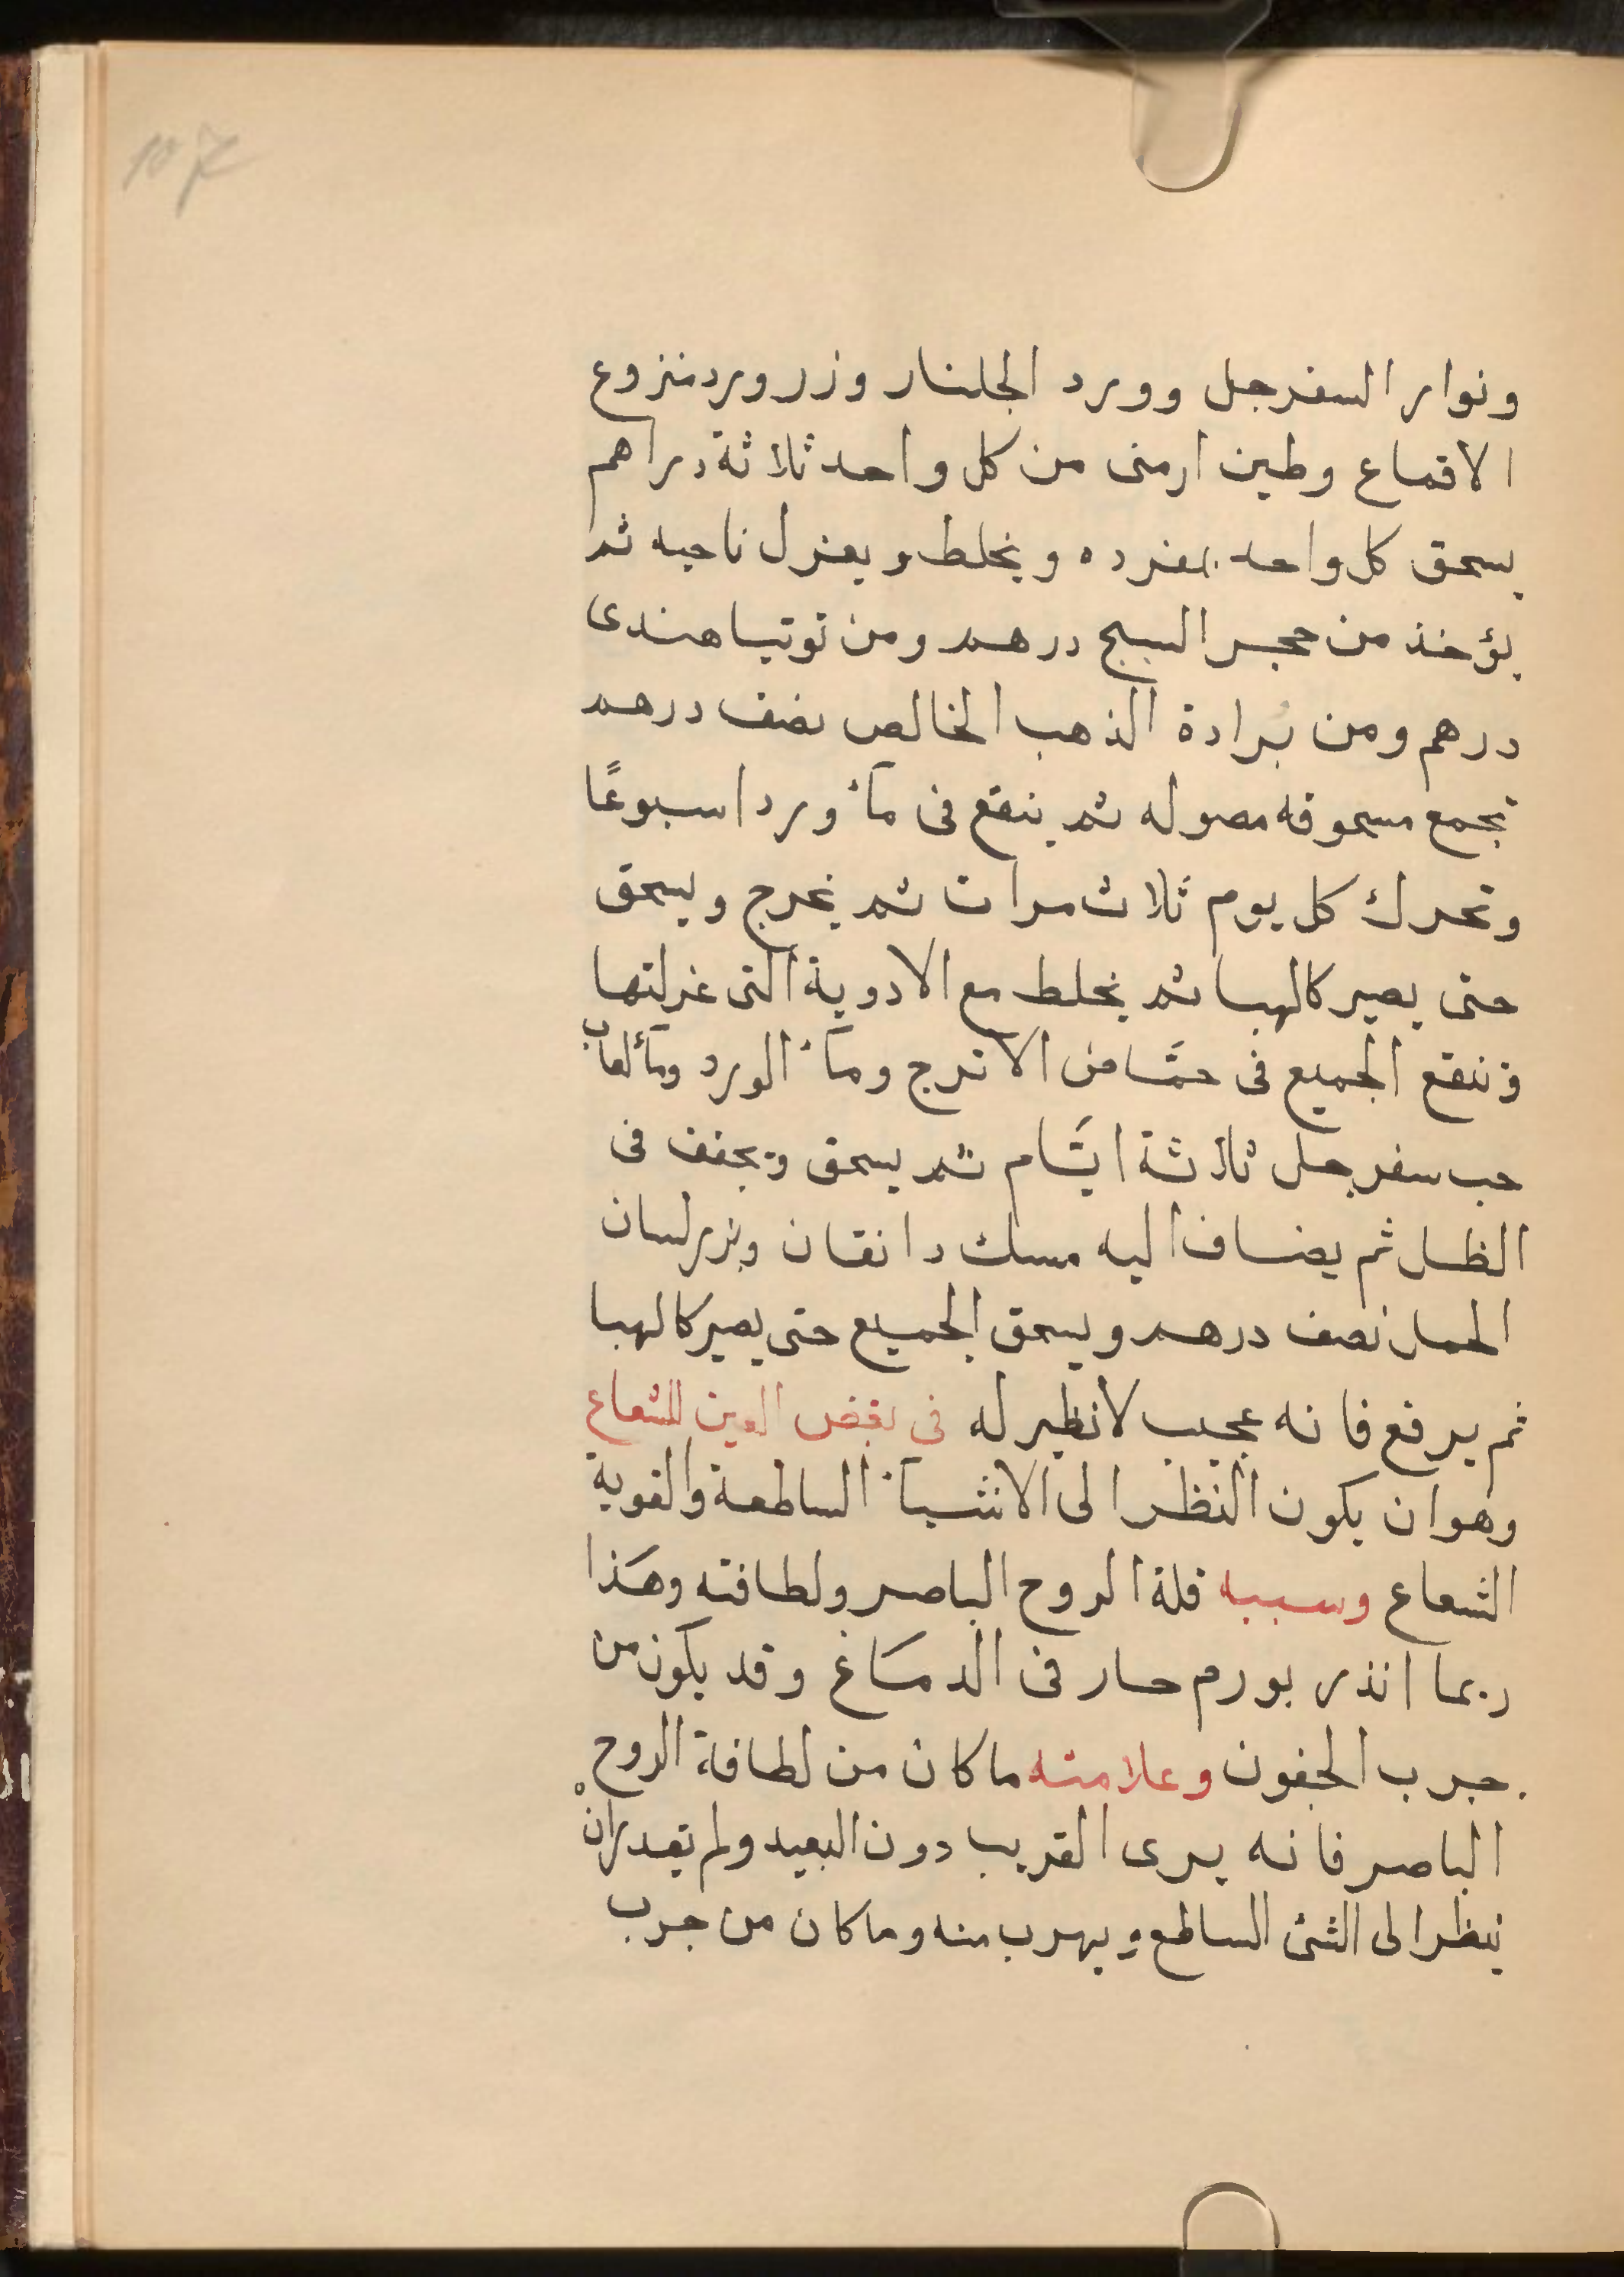 107
ونوار السفرجل وورد الجلنار وزر ورد منزوع
الاقماع وطين ارمنى من كل واحد ثلاثة دراهم
يسحق كل واحد بمفرده ويخلط ويعزل ناحيه ثم
يؤخذ من حجر السبج درهم ومن توتيا هندى
درهم ومن بُرادة الذهب الخالص نصف درهم
تجمع مسحوقه مصوله ثم ينقع فى مآء ورد اسبوعًا
وتحرك كل يوم ثلاث مرات ثم يخرج ويسحق
حتى يصير كالهبا ثم يخلط مع الادوية التى عزلتها
وتنقع الجميع فى حمَّاض الاترج ومآء الورد ومآء لعاب
حب سفرجل ثلاثة ايَّام ثم يسحق ويجفف فى
الظل ثم يضاف اليه مسك دانقان وبزر لسان
الحمل نصف درهم ويسحق الجميع حتى يصير كالهبا
ثم يرفع فانه عجيب لا نظير له فى بغض العين للشعاع
وهو ان يكون النظر الى الاشيآء الساطعة والقوية
الشعاع وسببه قلة الروح الباصر ولطافته وهَذا
ربما انذر بورم حار فى الدمَاغ وقد يكون من
جرب الجفون وعلامته ما كان من لطافة الروح
الباصر فانه يرى القريب دون البعيد ولم يقدر ان
ينظر الى الشئ الساطع ويهرب منه وما كان من جرب